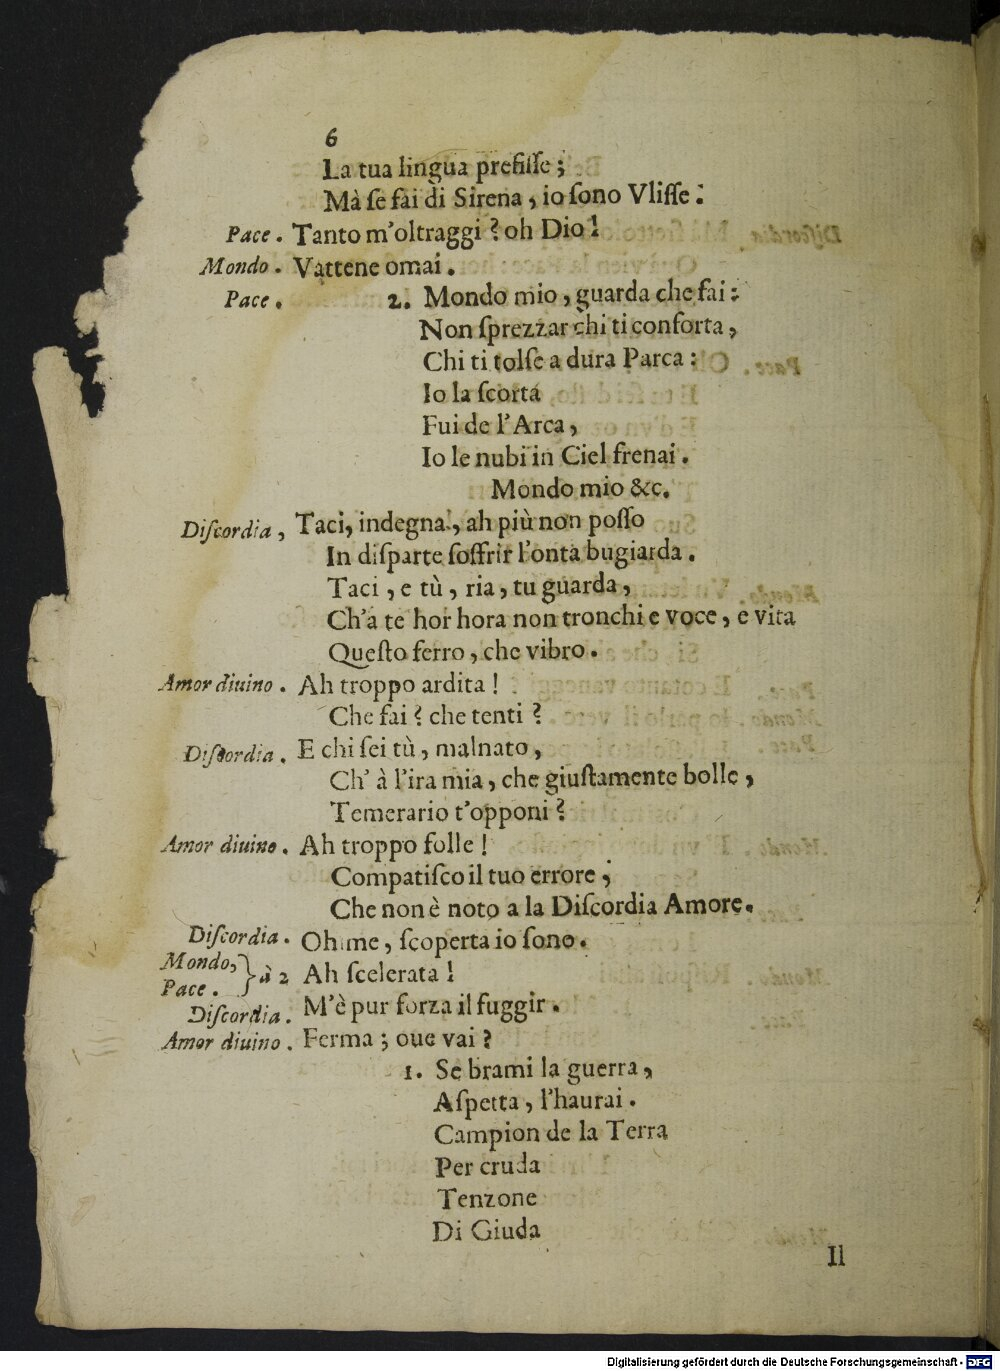 6
La tua lingua prefiſſe ;
Mà ſe fai di Sirena , io ſono Vliſſe .
Pace . Tanto m'oltraggi ? oh Dio !
Mondo . Vattene omai .
Pace . 2. Mondo mio , guarda che fai :
Non ſprezzar chi ti conforta ,
Chi ti tolſe a dura Parca :
Io la ſcorta
Fui de l'Arca ,
Io le nubi in Ciel frenai .
Mondo mio &c.
Diſcordia , Taci, indegna , ah più non poſſo
In diſparte ſoffrir l'onta bugiarda .
Taci , e tù , ria , tu guarda ,
Ch'a te hor hora non tronchi e voce , e vita
Queſto ferro , che vibro .
Amor diuino . Ah troppo ardita !
Che fai ? che tenti ?
Diſcordia . E chi ſei tù , malnato ,
Ch' à l'ira mia , che giuſtamente bolle ,
Temerario t'opponi ?
Amor diuino . Ah troppo folle !
Compatiſco il tuo errore ;
Che non è noto a la Diſcordia Amore .
Diſcordia . Ohime , ſcoperta io ſono .
Mondo, Pace . } à 2 Ah ſcelerata !
Diſcordia . M'è pur forza il fuggir .
Amor diuino . Ferma ; oue vai ?
1. Se brami la guerra ,
Aſpetta , l'haurai .
Campion de la Terra
Per cruda
Tenzone
Di Giuda
Il
Digitalisierung gefördert durch die Deutsche Forschungsgemeinschaft - DFG